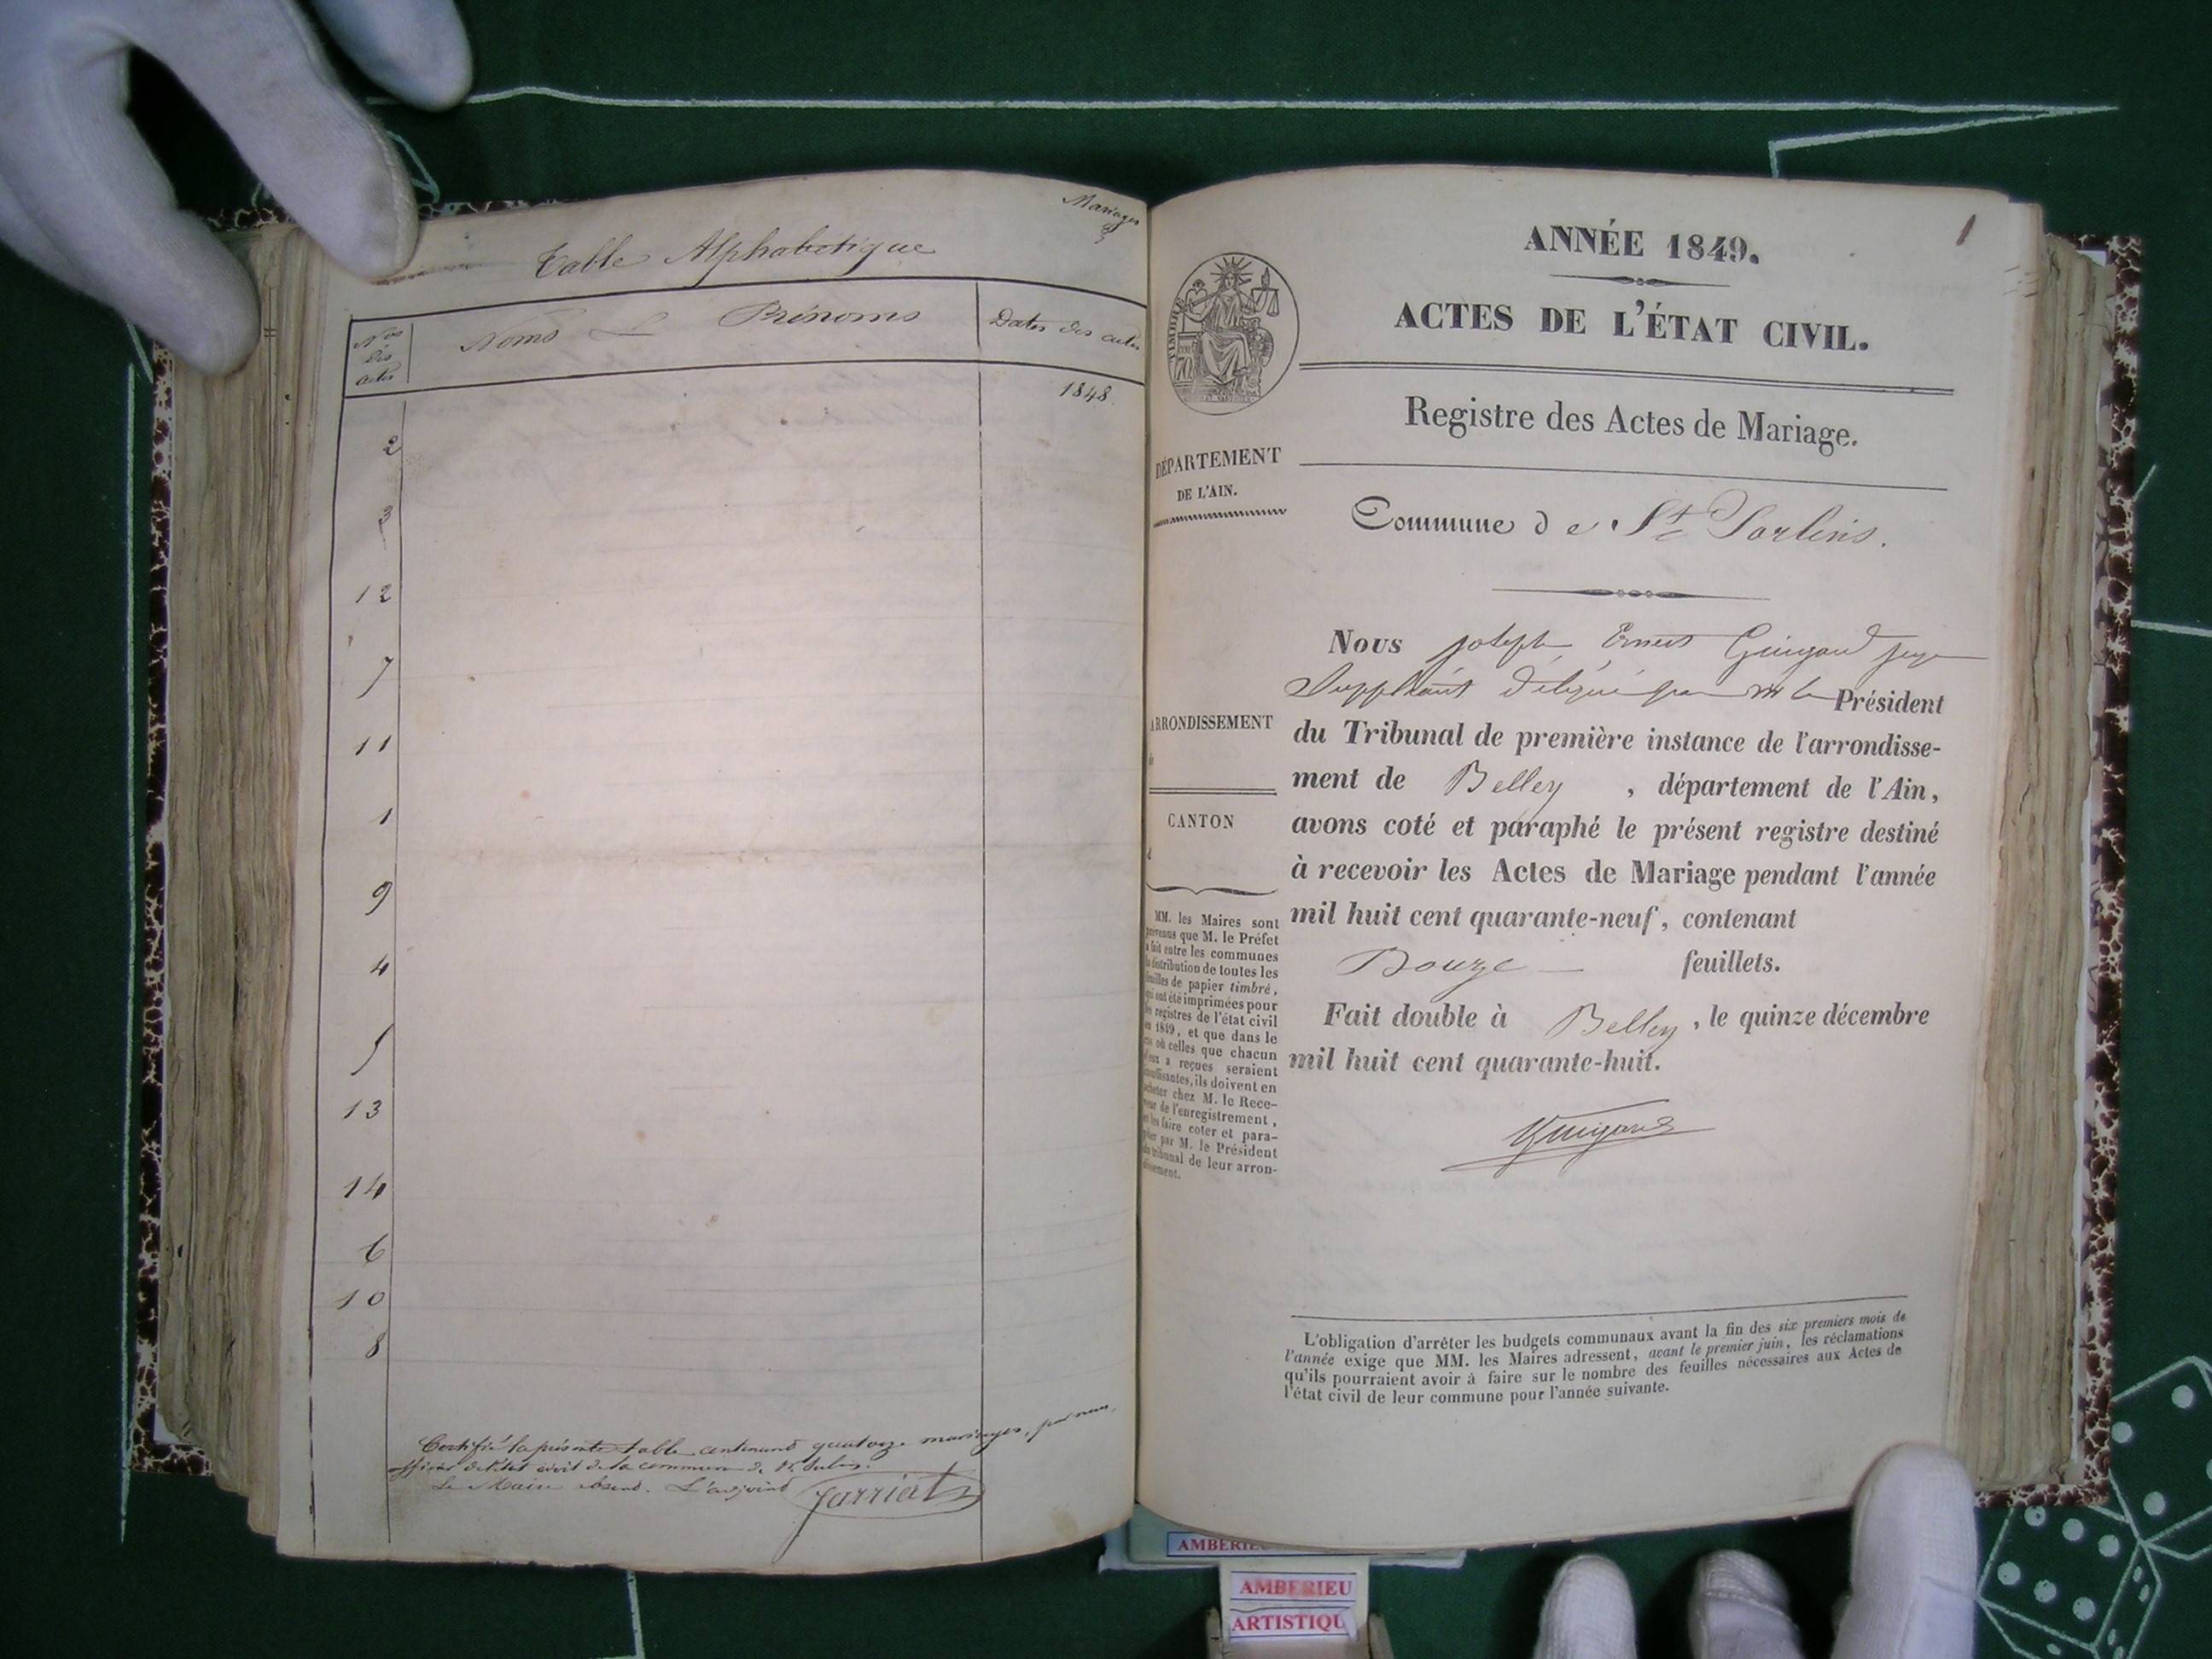 Mariages
Table Alphabétique
Nos des actes
Noms & Prénoms
Dates des actes
1848.
2
3
12
7
11
1
9
4
5
13
14
6
10
8
Certifié la présente table contenant quatorze mariages, par nous,
officier de l'état civil de la commune de St
Le Maire absent. L'adjoint Jarriat
1
ANNÉE 1849.
ACTES DE L'ÉTAT CIVIL.
Registre des Actes de Mariage.
TIMBRE
DÉPARTEMENT
DE L'AIN.
Commune de St Sorlin.
Nous joseph Ernest Guigard juge
Suppléant délégué par M le Président
du Tribunal de première instance de l'arrondisse-
ment de Belley , département de l'Ain,
avons coté et paraphé le présent registre destiné
à recevoir les Actes de Mariage pendant l'année
mil huit cent quarante-neuf, contenant
Douze feuillets.
Fait double à Belley, le quinze décembre
mil huit cent quarante-huit.
Guigard
ARRONDISSEMENT
de
CANTON
d
MM. les Maires sont
prévenus que M. le Préfet
a fait entre les communes
la distribution de toutes les
feuilles de papier timbré,
qui ont été imprimées pour
les registres de l'état civil
en 1849, et que dans le
cas où celles que chacun
d'eux a reçues seraient
insuffisantes, ils doivent en
acheter chez M. le Rece-
veur de l'enregistrement,
et les faire coter et para-
pher par M. le Président
du tribunal de leur arron-
dissement.
L'obligation d'arrêter les budgets communaux avant la fin des six premiers mois de
l'année exige que MM. les Maires adressent, avant le premier juin, les réclamations
qu'ils pourraient avoir à faire sur le nombre des feuilles nécessaires aux Actes de
l'état civil de leur commune pour l'année suivante.
AMBERIEU
AMBERIEU
ARTISTIQU